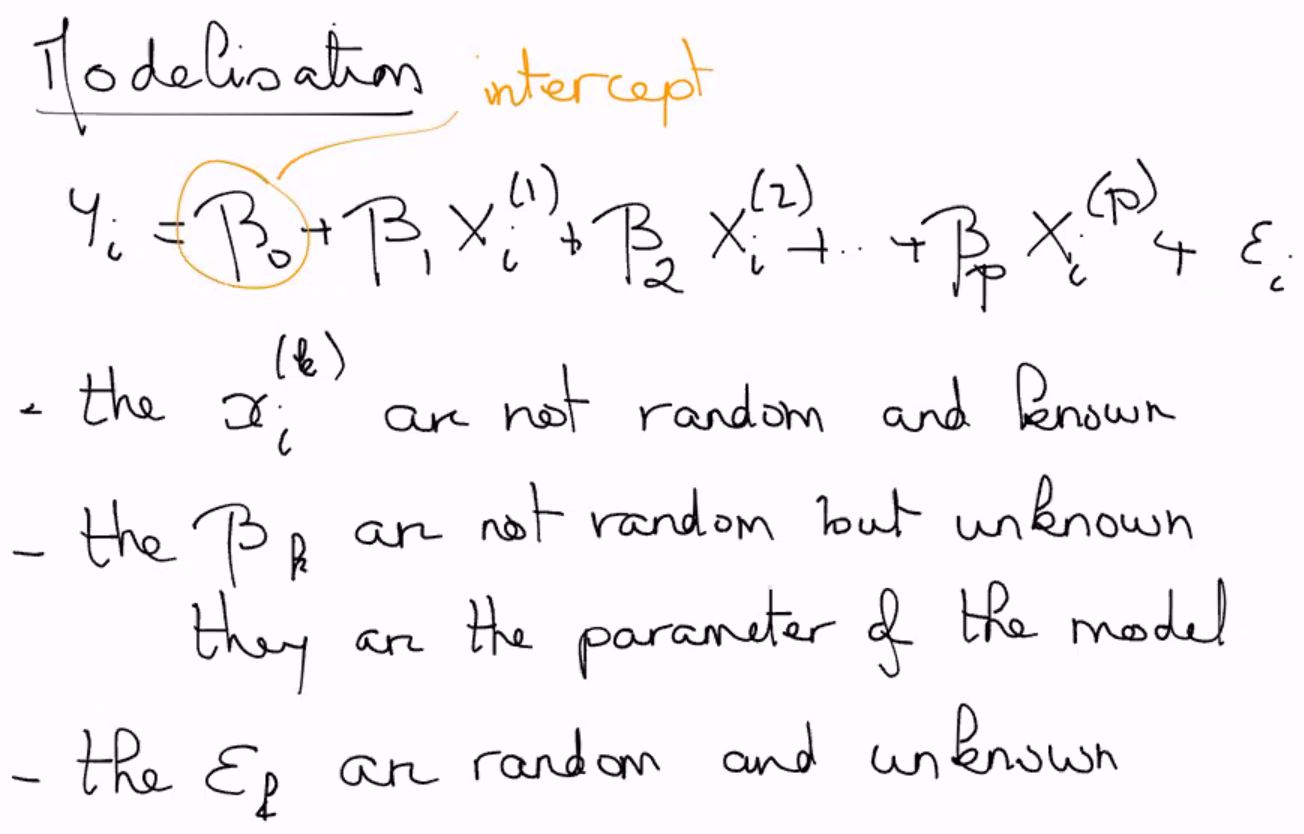 Modelisation intercept
Y_i = β_0 + β_1 X_i^(1) + β_2 X_i^(2) + .. + β_p X_i^(p) + ε_i
- the x_i^(k) are not random and known
- the β_k are not random but unknown
they are the parameter of the model
- the ε_k are random and unknown